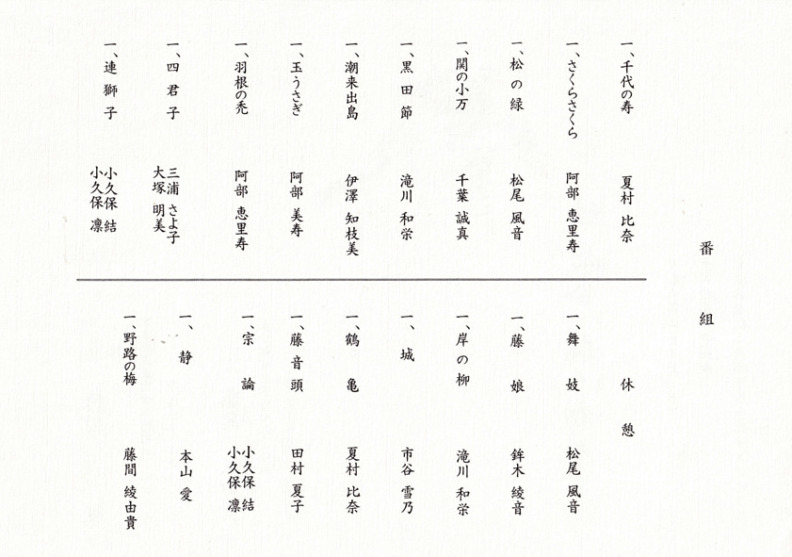 番組
一、千代の寿 夏村 比奈
一、さくらさくら 阿部 恵里寿
一、松の緑 松尾 風音
一、関の小万 千葉 誠真
一、黒田節 滝川 和栄
一、潮来出島 伊澤 知枝美
一、玉うさぎ 阿部 美寿
一、羽根の禿 阿部 恵里寿
一、四君子 三浦 さよ子
大塚 明美
一、連獅子 小久保 結
小久保 凛
休憩
一、舞妓 松尾 風音
一、藤娘 鉾木 綾音
一、岸の柳 滝川 和栄
一、城 市谷 雪乃
一、鶴亀 夏村 比奈
一、藤音頭 田村 夏子
一、宗論 小久保 結
小久保 凛
一、静 本山 愛
一、野路の梅 藤間 綾由貴